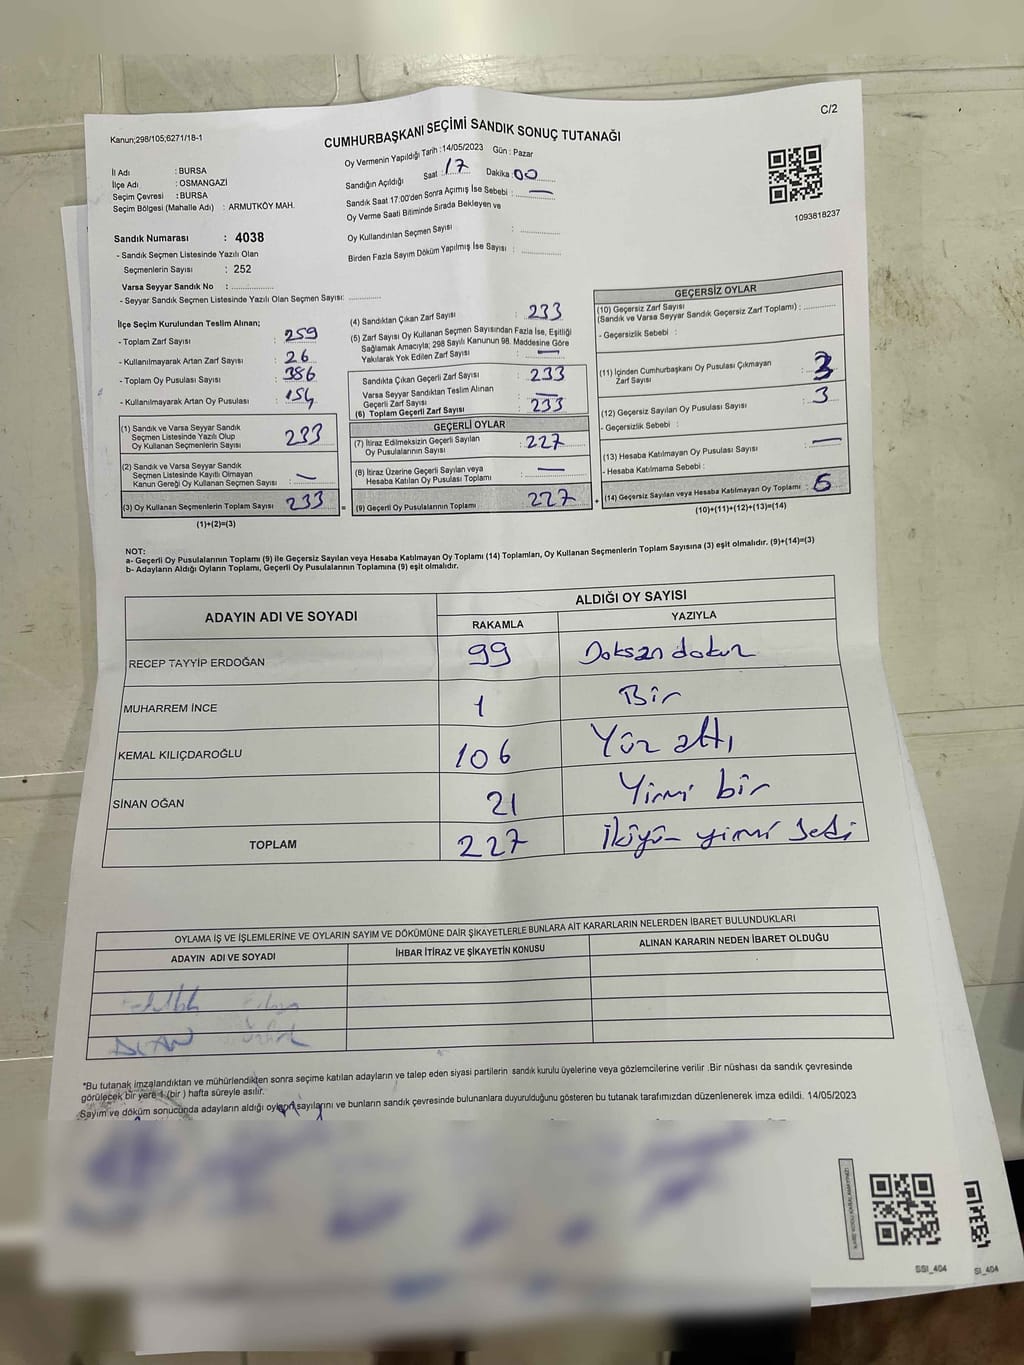 C/2
Kanun;298/105;6271/18-1
CUMHURBAŞKANI SEÇİMİ SANDIK SONUÇ TUTANAĞI
İl Adı : BURSA
İlçe Adı : OSMANGAZİ
Seçim Çevresi : BURSA
Seçim Bölgesi (Mahalle Adı) : ARMUTKÖY MAH.
Oy Vermenin Yapıldığı Tarih :14/05/2023 Gün : Pazar
Sandığın Açıldığı Saat : 17 Dakika : 00
Sandık Saat 17:00'den Sonra Açımış İse Sebebi : —
Oy Verme Saati Bitiminde Sırada Bekleyen ve
Oy Kullandırılan Seçmen Sayısı :
Birden Fazla Sayım Döküm Yapılmış İse Sayısı :
1093818237
Sandık Numarası : 4038
- Sandık Seçmen Listesinde Yazılı Olan
Seçmenlerin Sayısı : 252
Varsa Seyyar Sandık No :
- Seyyar Sandık Seçmen Listesinde Yazılı Olan Seçmen Sayısı:
İlçe Seçim Kurulundan Teslim Alınan;
- Toplam Zarf Sayısı : 259
- Kullanılmayarak Artan Zarf Sayısı : 26
- Toplam Oy Pusulası Sayısı : 386
- Kullanılmayarak Artan Oy Pusulası : 154
(1) Sandık ve Varsa Seyyar Sandık
Seçmen Listesinde Yazılı Olup
Oy Kullanan Seçmenlerin Sayısı : 233
(2) Sandık ve Varsa Seyyar Sandık
Seçmen Listesinde Kayıtlı Olmayan
Kanun Gereği Oy Kullanan Seçmen Sayısı : —
(3) Oy Kullanan Seçmenlerin Toplam Sayısı : 233
(1)+(2)=(3)
(4) Sandıktan Çıkan Zarf Sayısı : 233
(5) Zarf Sayısı Oy Kullanan Seçmen Sayısından Fazla İse, Eşitliği
Sağlamak Amacıyla; 298 Sayılı Kanunun 98. Maddesine Göre
Yakılarak Yok Edilen Zarf Sayısı : —
Sandıkta Çıkan Geçerli Zarf Sayısı : 233
Varsa Seyyar Sandıktan Teslim Alınan
Geçerli Zarf Sayısı : —
(6) Toplam Geçerli Zarf Sayısı : 233
GEÇERLİ OYLAR
(7) İtiraz Edilmeksizin Geçerli Sayılan
Oy Pusulalarının Sayısı : 227
(8) İtiraz Üzerine Geçerli Sayılan veya
Hesaba Katılan Oy Pusulası Toplamı : —
= (9) Geçerli Oy Pusulalarının Toplamı : 227 +
GEÇERSİZ OYLAR
(10) Geçersiz Zarf Sayısı
(Sandık ve Varsa Seyyar Sandık Geçersiz Zarf Toplamı) :
- Geçersizlik Sebebi :
(11) İçinden Cumhurbaşkanı Oy Pusulası Çıkmayan
Zarf Sayısı : 3
(12) Geçersiz Sayılan Oy Pusulası Sayısı : 3
- Geçersizlik Sebebi :
(13) Hesaba Katılmayan Oy Pusulası Sayısı : —
- Hesaba Katılmama Sebebi :
(14) Geçersiz Sayılan veya Hesaba Katılmayan Oy Toplamı : 6
(10)+(11)+(12)+(13)=(14)
NOT:
a- Geçerli Oy Pusulalarının Toplamı (9) ile Geçersiz Sayılan veya Hesaba Katılmayan Oy Toplamı (14) Toplamları, Oy Kullanan Seçmenlerin Toplam Sayısına (3) eşit olmalıdır. (9)+(14)=(3)
b- Adayların Aldığı Oyların Toplamı, Geçerli Oy Pusulalarının Toplamına (9) eşit olmalıdır.
ADAYIN ADI VE SOYADI ALDIĞI OY SAYISI
RAKAMLA YAZIYLA
RECEP TAYYİP ERDOĞAN 99 Doksan dokuz
MUHARREM İNCE 1 Bir
KEMAL KILIÇDAROĞLU 106 Yüz altı
SİNAN OĞAN 21 Yirmi bir
TOPLAM 227 İkiyüz yirmi yedi
OYLAMA İŞ VE İŞLEMLERİNE VE OYLARIN SAYIM VE DÖKÜMÜNE DAİR ŞİKAYETLERLE BUNLARA AİT KARARLARIN NELERDEN İBARET BULUNDUKLARI
ADAYIN ADI VE SOYADI İHBAR İTİRAZ VE ŞİKAYETİN KONUSU ALINAN KARARIN NEDEN İBARET OLDUĞU
*Bu tutanak imzalandıktan ve mühürlendikten sonra seçime katılan adayların ve talep eden siyasi partilerin sandık kurulu üyelerine veya gözlemcilerine verilir .Bir nüshası da sandık çevresinde
görülecek bir yere 1 (bir ) hafta süreyle asılır.
Sayım ve döküm sonucunda adayların aldığı oyların sayılarını ve bunların sandık çevresinde bulunanlara duyurulduğunu gösteren bu tutanak tarafımızdan düzenlenerek imza edildi. 14/05/2023
SSI_404
SI_404